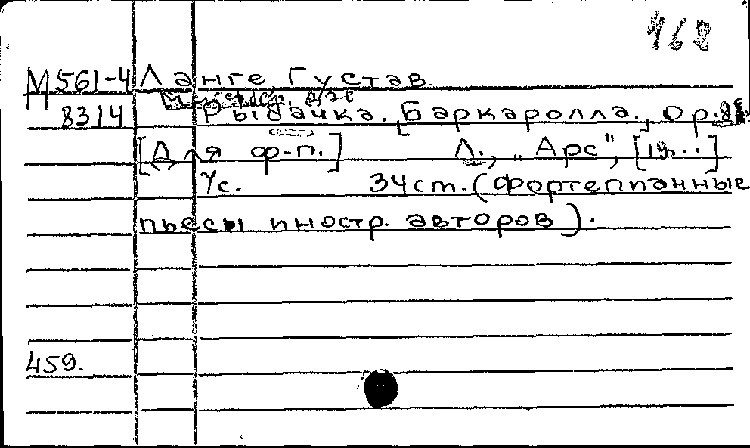 168
М561-4 Ланге Густав
8314 Рыбачка. [Баркаролла.], Op.
[Для ф-п.] Л., „Арс", [19...]
7с. 34cm. (Фортепианные
пьесы иностр. авторов).
459.